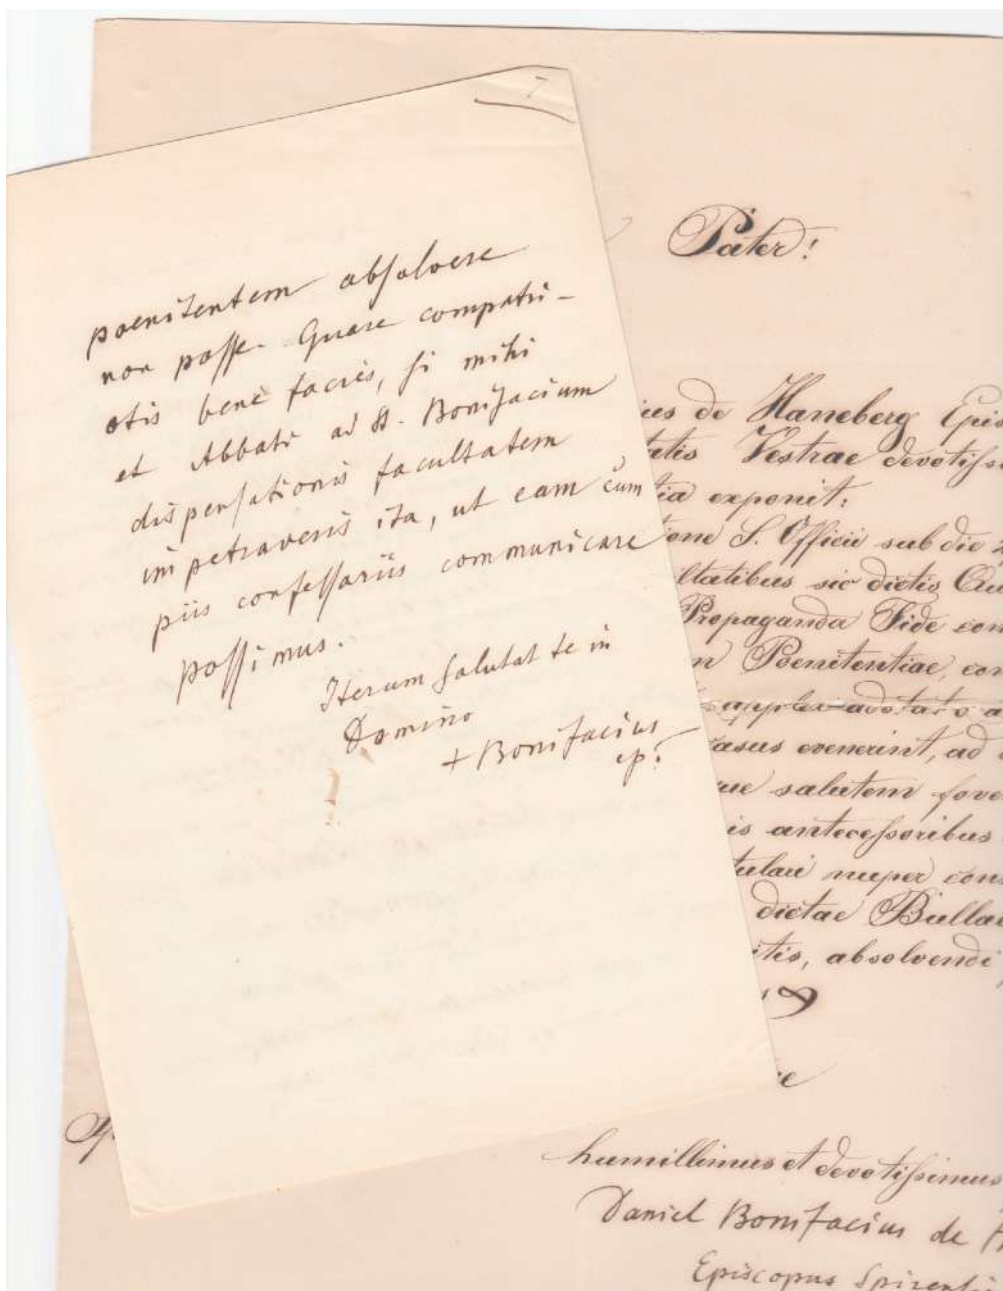 7
poenitentem absolvere
non posse. Quare compatri-
otis bene facies, si mihi
et Abbati ad St. Bonifacium
dispensationis facultatem
impetraveris ita, ut eam cum
piis confessariis communicare
possimus.
Iterum salutat te in
Domino
+ Bonifacius
ep.
Pater!
ius de Haneberg Epis
tatis Vestrae devotiss
tia exponit:
one S. Officii sub die 2
ltatibus sic dictis Qu
Propaganda Fide con
m Poenitentiae, con
casus evenerint, ad
que salutem fove
is antecessoribus
tulari nuper cons
dictae Bullae
itis, absolvendi
humillimus et devotissimus
Daniel Bonifacius de H
Episcopus Spirensi